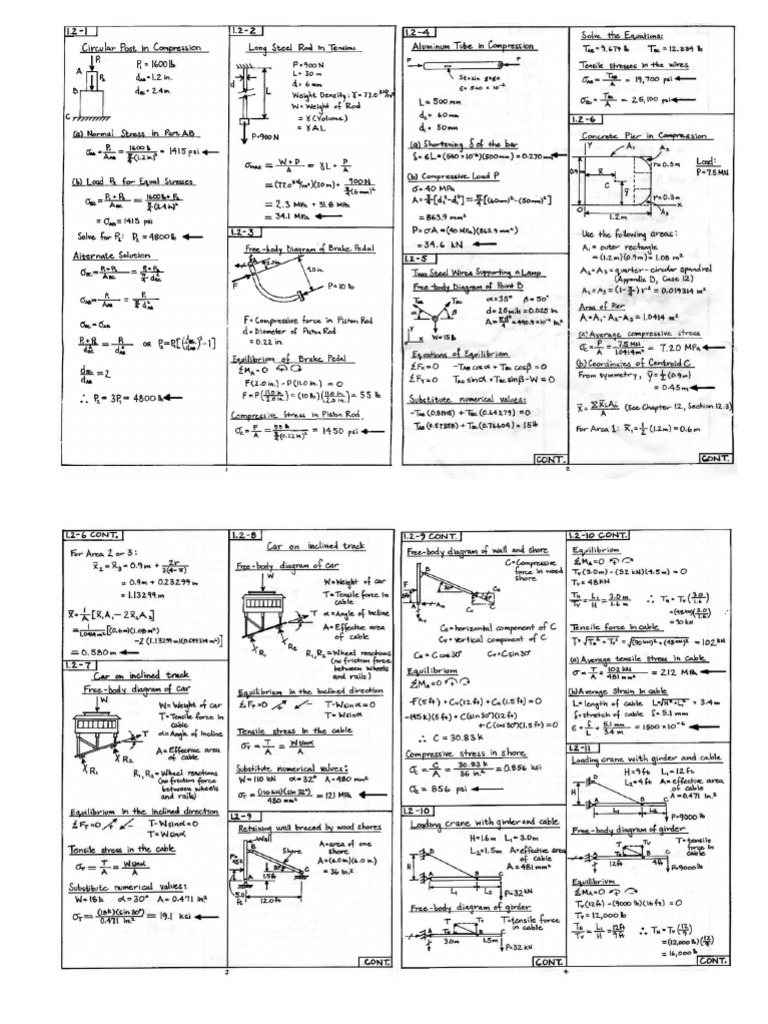 1.2-1
Circular Post in Compression
P₁
P₁ = 1600 lb
d_AB = 1.2 in.
d_BC = 2.4 in.
A
P₂
B
C
(a) Normal Stress in Part AB
σ_AB = P₁/A_AB = 1600 lb / (π/4)(1.2 in.)² = 1415 psi
(b) Load P₂ for Equal Stresses
σ_BC = (P₁+P₂)/A_BC = (1600 lb + P₂) / (π/4)(2.4 in.)²
= σ_AB = 1415 psi
Solve for P₂: P₂ = 4800 lb
Alternate Solution
σ_BC = (P₁+P₂)/A_BC = (P₁+P₂)/(π/4)d²_BC
σ_AB = P₁/A_AB = P₁/(π/4)d²_AB
σ_BC = σ_AB
(P₁+P₂)/d²_BC = P₁/d²_AB OR P₂ = P₁[(d_BC/d_AB)² - 1]
d_BC/d_AB = 2
∴ P₂ = 3P₁ = 4800 lb
1.2-2
Long Steel Rod in Tension
P = 900 N
L = 30 m
d = 6 mm
Weight Density: γ = 77.0 kN/m³
W = Weight of Rod
= γ(Volume)
= γAL
d
L
P = 900 N
σ_max = (W+P)/A = γL + P/A
= (77.0 kN/m³)(30 m) + 900 N / (π/4)(6 mm)²
= 2.3 MPa + 31.8 MPa
= 34.1 MPa
1.2-3
Free-body Diagram of Brake Pedal
A
2.0 in.
9.0 in.
F
P = 10 lb
F = Compressive force in Piston Rod
d = Diameter of Piston Rod
= 0.22 in.
Equilibrium of Brake Pedal
ΣM_A = 0
F(2.0 in.) - P(11.0 in.) = 0
F = P(11.0 in./2.0 in.) = (10 lb)(11.0 in./2.0 in.) = 55 lb
Compressive Stress in Piston Rod
σ_c = F/A = 55 lb / (π/4)(0.22 in.)² = 1450 psi
1
1.2-4
Aluminum Tube in Compression
P
P
Strain gage
ε = 540 × 10⁻⁶
L = 500 mm
d₂ = 60 mm
d₁ = 50 mm
(a) Shortening δ of the bar
δ = εL = (540 × 10⁻⁶)(500 mm) = 0.270 mm
(b) Compressive Load P
σ = 40 MPa
A = π/4[d₂² - d₁²] = π/4[(60 mm)² - (50 mm)²]
= 863.9 mm²
P = σA = (40 MPa)(863.9 mm²)
= 34.6 kN
1.2-5
Two Steel Wires Supporting a Lamp
Free-body Diagram of Point B
T_AB
T_BC
α
β
B
y
x
W = 15 lb
α = 35° β = 50°
d = 25 mils = 0.025 in
A = πd²/4 = 490.9 × 10⁻⁶ in²
Equations of Equilibrium
ΣF_x = 0 -T_AB cos α + T_BC cos β = 0
ΣF_y = 0 T_AB sin α + T_BC sin β - W = 0
Substitute numerical values:
-T_AB (0.81915) + T_BC (0.64279) = 0
T_AB (0.57358) + T_BC (0.76604) = 15 lb
CONT.
Solve the Equations:
T_AB = 9.679 lb T_BC = 12.334 lb
Tensile stresses in the wires
σ_AB = T_AB/A = 19,700 psi
σ_BC = T_BC/A = 25,100 psi
1.2-6
Concrete Pier in Compression
Y
A₁
A₂
r = 0.3 m
Load:
P = 7.5 MN
0.9 m
x̄
C
ȳ
r = 0.3 m
x
A₃
1.2 m
Use the following areas:
A₁ = outer rectangle
= (1.2 m)(0.9 m) = 1.08 m²
A₂ = A₃ = quarter-circular spandrel
(Appendix D, Case 12)
A₂ = A₃ = (1 - π/4) r² = 0.019314 m²
Area of Pier
A = A₁ - A₂ - A₃ = 1.0414 m²
(a) Average compressive stress
σ_c = P/A = 7.5 MN/1.0414 m² = 7.20 MPa
(b) Coordinates of Centroid C
From symmetry, ȳ = ½(0.9 m)
= 0.45 m
x̄ = Σx̄ᵢAᵢ/A (See Chapter 12, Section 12.3)
For Area 1: x̄₁ = ½(1.2 m) = 0.6 m
CONT.
2
1.2-6 CONT.
For Area 2 or 3:
x̄₂ = x̄₃ = 0.9 m + 2r/3(4-π)
= 0.9 m + 0.23299 m
= 1.13299 m
x̄ = 1/A [x̄₁A₁ - 2x̄₂A₂]
= 1/1.0414 m² [(0.6 m)(1.08 m²)
-2(1.13299 m)(0.019314 m²)]
= 0.580 m
1.2-7
Car on inclined track
Free-body diagram of car
W
T
α
R₁
R₂
W = Weight of car
T = Tensile force in
cable
α = Angle of Incline
A = Effective area
of cable
R₁, R₂ = Wheel reactions
(no friction force
between wheels
and rails)
Equilibrium in the inclined direction
ΣF_T = 0 T - W sin α = 0
T = W sin α
Tensile stress in the cable
σ_T = T/A = W sin α/A
Substitute numerical values:
W = 18 k α = 30° A = 0.471 in²
σ_T = (18 k)(sin 30°)/0.471 in² = 19.1 ksi
1.2-8
Car on inclined track
Free-body diagram of car
W
T
α
R₁
R₂
W = Weight of car
T = Tensile force in
cable
α = Angle of Incline
A = Effective area
of cable
R₁, R₂ = Wheel reactions
(no friction force
between wheels
and rails)
Equilibrium in the inclined direction
ΣF_T = 0 T - W sin α = 0
T = W sin α
Tensile stress in the cable
σ_T = T/A = W sin α/A
Substitute numerical values:
W = 110 kN α = 32° A = 480 mm²
σ_T = (110 kN)(sin 32°)/480 mm² = 121 MPa
1.2-9
Retaining wall braced by wood shores
Wall
Shore
B
30°
A
C
1.5 ft
5.0 ft
12.0 ft
A = area of one
shore
A = (6.0 in)(6.0 in.)
= 36 in²
CONT.
3
1.2-9 CONT.
Free-body diagram of wall and shore
C = Compressive
force in wood
shore
B
F
A
C
C_H = horizontal component of C
C_V = vertical component of C
C_H = C cos 30° C_V = C sin 30°
Equilibrium
ΣM_A = 0
-F(5 ft) + C_V(12 ft) + C_H(1.5 ft) = 0
-(45 k)(5 ft) + C(sin 30°)(12 ft)
+ C(cos 30°)(1.5 ft) = 0
∴ C = 30.83 k
Compressive stress in shore
σ_c = C/A = 30.83 k/36 in² = 0.856 ksi
σ_c = 856 psi
1.2-10
Loading crane with girder and cable
H = 1.6 m L₁ = 3.0 m
L₂ = 1.5 m A = effective area
of cable
A = 481 mm²
H
L₁
L₂
P = 32 kN
Free-body diagram of girder
T
T_V
T_H
A
B
C
3.0 m
1.5 m
T = tensile force
in cable
P = 32 kN
CONT.
1.2-10 CONT.
Equilibrium
ΣM_A = 0
T_V(3.0 m) - (32 kN)(4.5 m) = 0
T_V = 48 kN
T_H/T_V = L₁/H = 3.0 m/1.6 m ∴ T_H = T_V(3.0/1.6)
= (48 kN)(3.0/1.6)
= 90 kN
Tensile force in cable
T = √(T_H² + T_V²) = √((90 kN)² + (48 kN)²) = 102 kN
(a) Average tensile stress in cable
σ = T/A = 102 kN/481 mm² = 212 MPa
(b) Average strain in cable
L = length of cable L = √(H² + L₁²) = 3.4 m
δ = stretch of cable δ = 5.1 mm
ε = δ/L = 5.1 mm/3.4 m = 1500 × 10⁻⁶
1.2-11
Loading crane with girder and cable
H = 9 ft L₁ = 12 ft
L₂ = 4 ft A = effective area
of cable
A = 0.471 in.²
H
L₁
L₂
P = 9000 lb
Free-body diagram of girder
T
T_V
T_H
T = tensile
force in
cable
12 ft
4 ft
P = 9000 lb
Equilibrium
ΣM_A = 0
T_V(12 ft) - (9000 lb)(16 ft) = 0
T_V = 12,000 lb
T_H/T_V = L₁/H = 12 ft/9 ft ∴ T_H = T_V(12/9)
= (12,000 lb)(12/9)
= 16,000 lb
CONT.
4